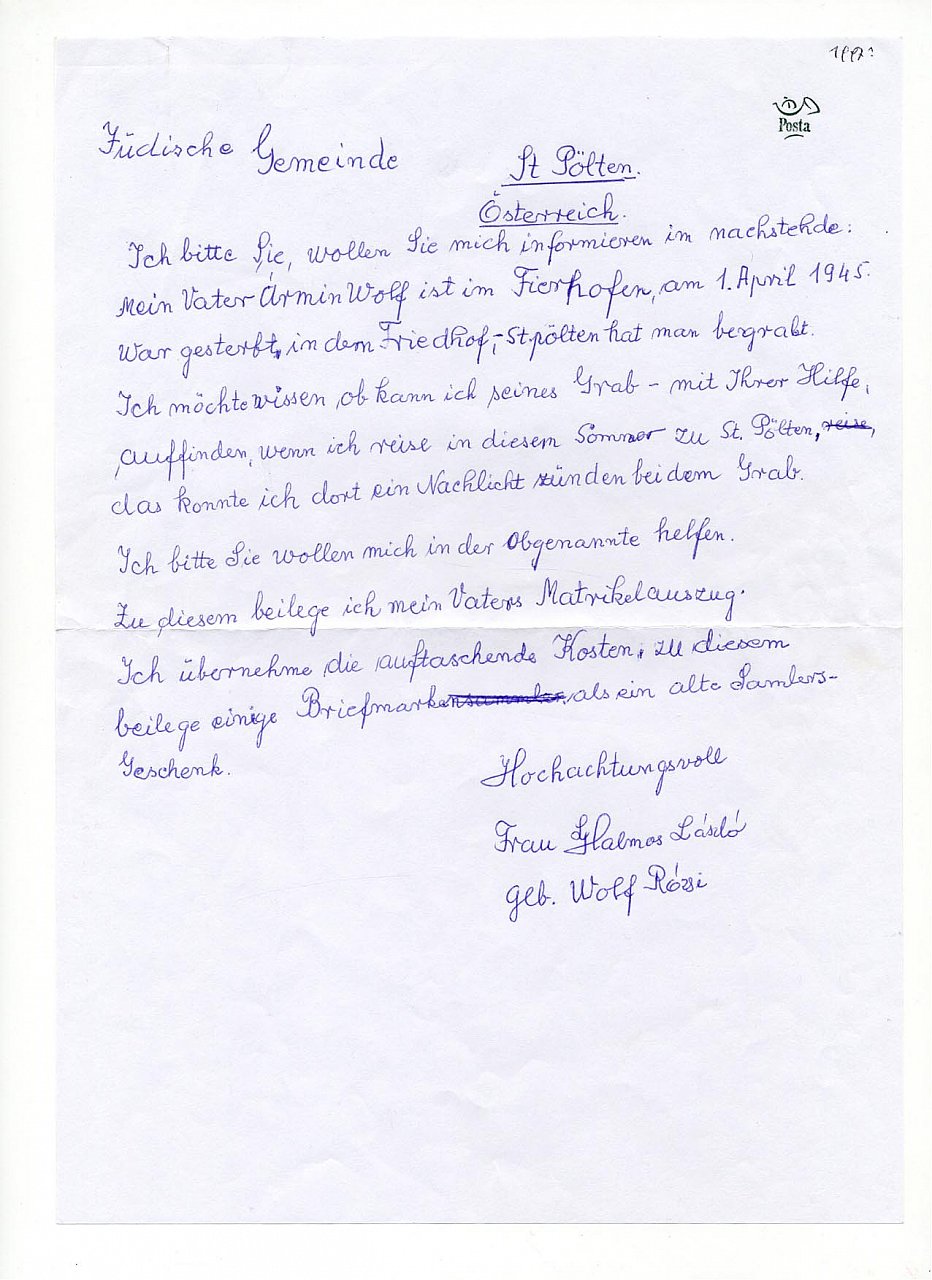 199?
Posta
Jüdische Gemeinde
St Pölten.
Österreich.
Ich bitte Sie, wollen Sie mich informieren im nachstehde:
Mein Vater Ármin Wolf ist im Fierhofen, am 1. April 1945.
War gesterbt, in dem Friedhof,-St.pölten hat man bergrabt.
Ich möchte wissen, ob kann ich seines Grab - mit Ihrer Hilfe,
auffinden, wenn ich reise in diesem Sommer zu St. Pölten, reise,
das konnte ich dort ein Nachlicht zünden bei dem Grab.
Ich bitte Sie wollen mich in der Obgenannte helfen.
Zu diesem beilege ich mein Vaters Matrikelauszug.
Ich übernehme die auftaschende Kosten, zu diesem
beilege einige Briefmarkensammler, als ein alte Samlers-
Geschenk.
Hochachtungsvoll
Frau Halmos László
geb. Wolf Rózsi